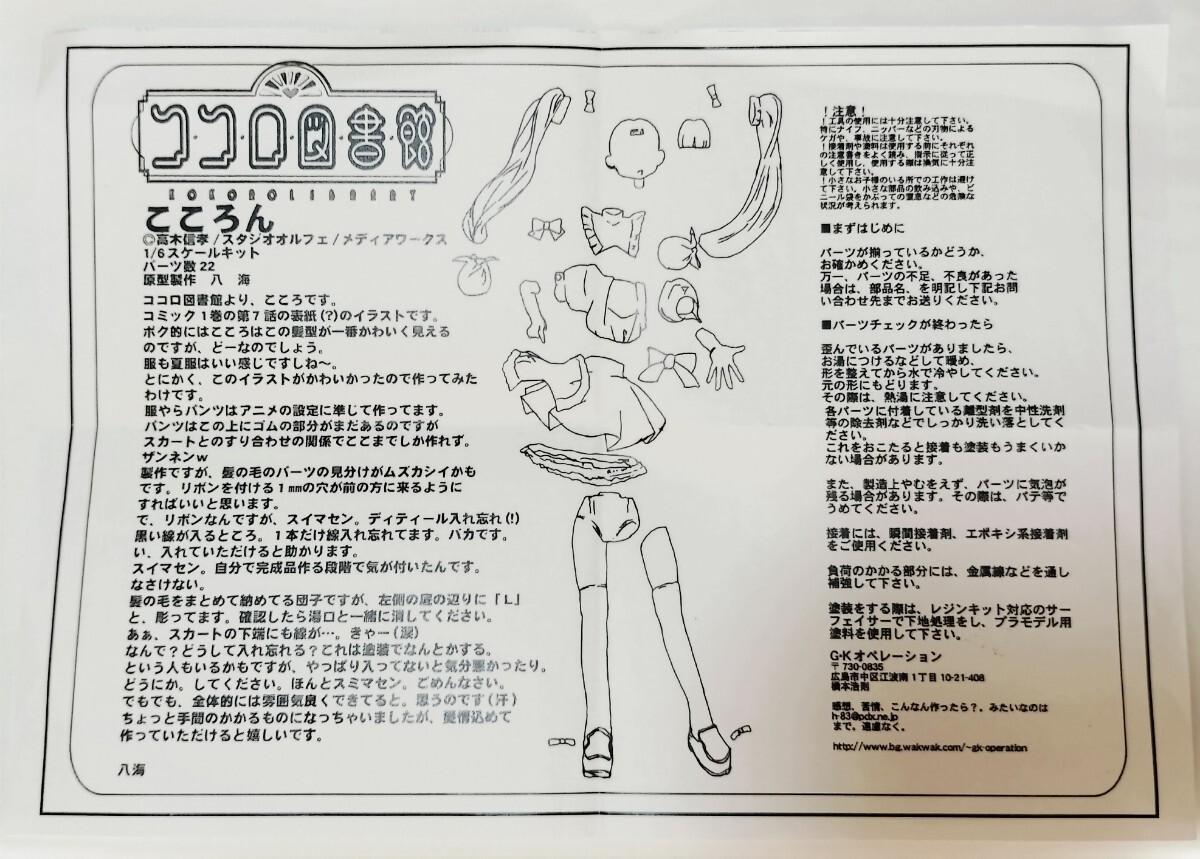 ココロ図書館
KOKORO LIBRARY
こころん
©高木信孝/スタジオオルフェ/メディアワークス
1/6スケールキット
パーツ数22
原型製作 八 海
ココロ図書館より、こころです。
コミック1巻の第7話の表紙(?)のイラストです。
ボク的にはこころはこの髪型が一番かわいく見える
のですが、どーなのでしょう。
服も夏服はいい感じですしね～。
とにかく、このイラストがかわいかったので作ってみた
わけです。
服やらパンツはアニメの設定に準じて作ってます。
パンツはこの上にゴムの部分がまだあるのですが
スカートとのすり合わせの関係でここまでしか作れず。
ザンネンw
製作ですが、髪の毛のパーツの見分けがムズカシイかも
です。リボンを付ける1㎜の穴が前の方に来るように
すればいいと思います。
で、リボンなんですが、スイマセン。ディティール入れ忘れ(!)
黒い線が入るところ。1本だけ線入れ忘れてます。バカです。
い、入れていただけると助かります。
スイマセン。自分で完成品作る段階で気が付いたんです。
なさけない。
髪の毛をまとめて納めてる団子ですが、左側の底の辺りに「L」
と、彫ってます。確認したら湯口と一緒に消してください。
あぁ、スカートの下端にも線が…。きゃー(涙)
なんで?どうして入れ忘れる?これは塗装でなんとかする。
という人もいるかもですが、やっぱり入ってないと気分悪かったり。
どうにか。してください。ほんとスミマセン。ごめんなさい。
でもでも、全体的には雰囲気良くできてると。思うのです(汗)
ちょっと手間のかかるものになっちゃいましたが、愛情込めて
作っていただけると嬉しいです。
八海
!注意!
!工具の使用には十分注意して下さい。
特にナイフ、ニッパーなどの刃物による
ケガや、事故に注意して下さい。
!接着剤や塗料は使用する前にそれぞれ
の注意書きをよく読み、指示に従って正
しく使用し、使用する際は換気に十分注
意して下さい。
!小さなお子様のいる所での工作は避け
て下さい。小さな部品の飲み込みや、ビ
ニール袋をかぶっての窒息などの危険な
状況が考えられます。
■まずはじめに
パーツが揃っているかどうか、
お確かめください。
万一、パーツの不足、不良があった
場合は、部品名、を明記し下記お問
い合わせ先までお送りください。
■パーツチェックが終わったら
歪んでいるパーツがありましたら、
お湯につけるなどして暖め、
形を整えてから水で冷やしてください。
元の形にもどります。
その際は、熱湯に注意してください。
各パーツに付着している離型剤を中性洗剤
等の除去剤などでしっかり洗い落としてく
ださい。
これをおこたると接着も塗装もうまくいか
ない場合があります。
また、製造上やむをえず、パーツに気泡が
残る場合があります。その際は、パテ等で
うめてください。
接着には、瞬間接着剤、エポキシ系接着剤
をご使用ください。
負荷のかかる部分には、金属線などを通し
補強して下さい。
塗装をする際は、レジンキット対応のサー
フェイサーで下地処理をし、プラモデル用
塗料を使用して下さい。
G・Kオペレーション
〒730-0835
広島市中区江波南1丁目10-21-408
橋本浩則
感想、苦情、こんなん作ったら?。みたいなのは
h-83@pdx.ne.jp
まで。遠慮なく。
http://www.bg.wakwak.com/~gk-operation